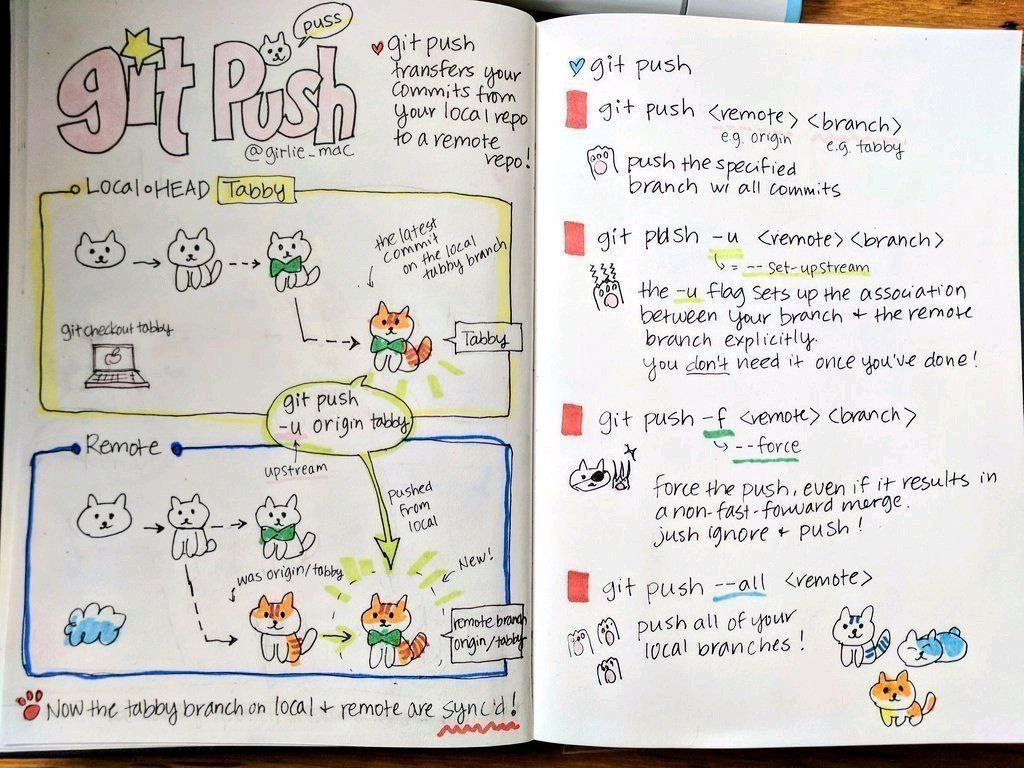 git Push
puss
@girlie_mac
git push
transfers your
commits from
your local repo
to a remote
repo!
Local HEAD Tabby
the latest
commit
on the local
tabby branch
git checkout tabby
Tabby
git push
-u origin tabby
upstream
Remote
pushed
from
local
was origin/tabby
New!
remote branch
origin/tabby
Now the tabby branch on local + remote are sync'd!
git push
git push <remote> <branch>
e.g. origin
e.g. tabby
push the specified
branch w/ all commits
git push -u <remote> <branch>
= --set-upstream
the -u flag sets up the association
between your branch + the remote
branch explicitly.
you don't need it once you've done!
git push -f <remote> <branch>
--force
Force the push, even if it results in
a non-fast-forward merge.
just ignore + push!
git push --all <remote>
push all of your
local branches!